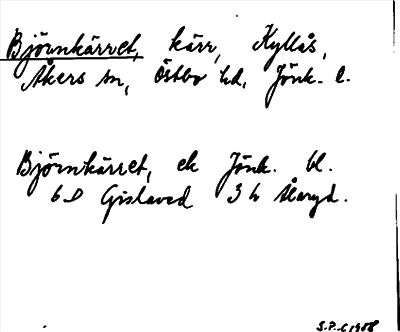 Björnkärret, kärr, Kyllås,
Åkers sn, Östbo hd, Jönk. l.
Björnkärret, ek Jönk. bl.
6 D Gislaved 3 h Maryd.
S.P.-C 1958